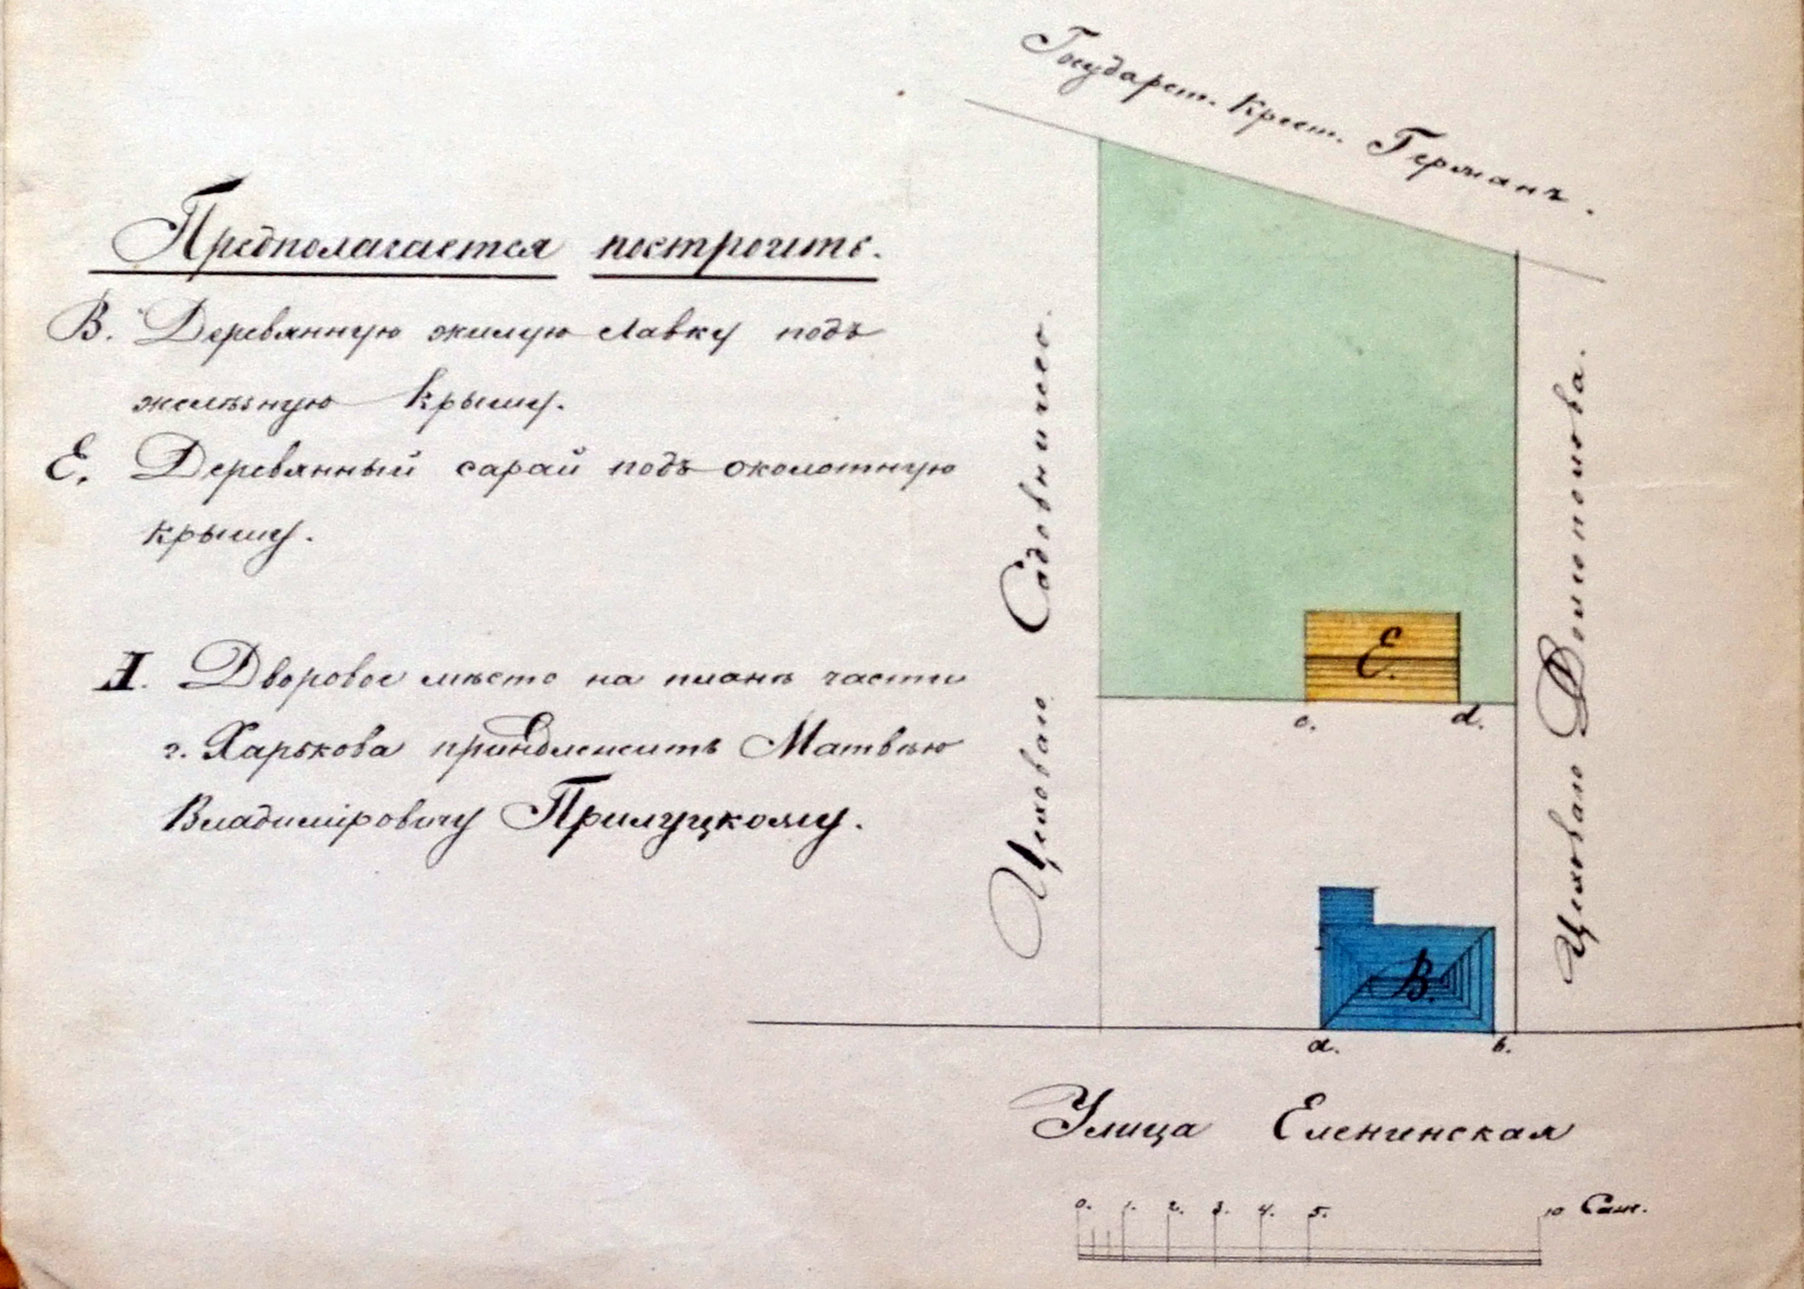 Предполагается построить.
В. Деревянную жилую лавку подъ
желѣзную крышу.
Е. Деревянный сарай подъ околотную
крышу.
I. Дворовое мѣсто на планѣ части
г. Харькова принадлежитъ Матвѣю
Владиміровичу Прилуцкому.
Государст. Крест. Германъ.
Цеховаго Садовничего.
Цеховаго Доломонова.
Е.
c. d.
В.
a. b.
Улица Еленинская
0. 1. 2. 3. 4. 5. 10 Саж.